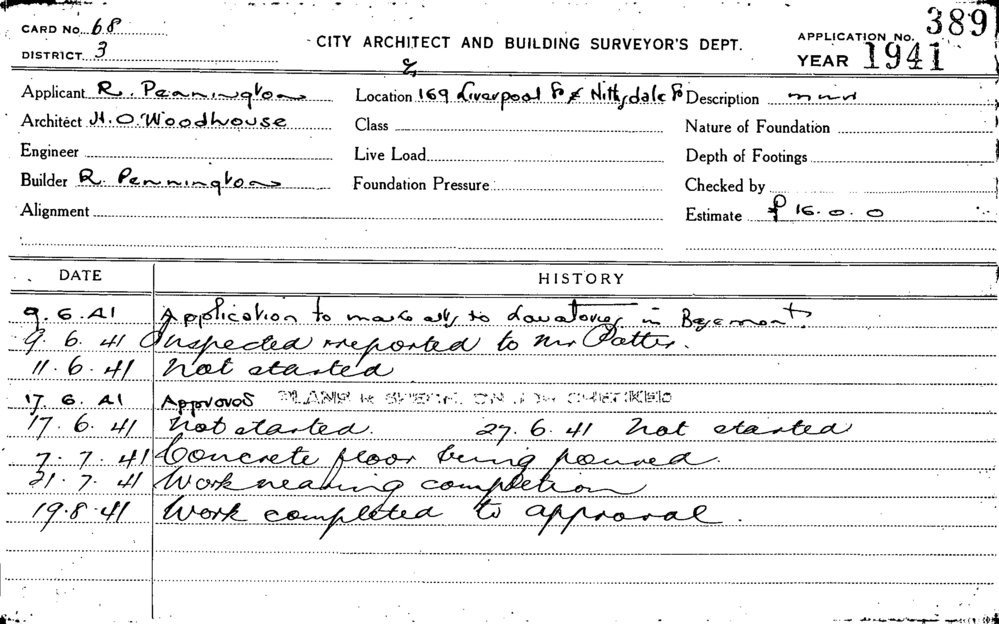 CARD No. 68
DISTRICT 3
CITY ARCHITECT AND BUILDING SURVEYOR'S DEPT.
APPLICATION No. 389
YEAR 1941
Applicant R. Pennington
Location 169 Liverpool St & Nithsdale St
Description
Architect H.O. Woodhouse
Class
Nature of Foundation
Engineer
Live Load
Depth of Footings
Builder R. Pennington
Foundation Pressure
Checked by
Alignment
Estimate £16.0.0
DATE HISTORY
9.6.41 Application to make alts to Lavatories in Basement.
9.6.41 Inspected & reported to Mr Potter.
11.6.41 Not started
17.6.41 Approved PLANS & SPECN. ON JOB CHECKED
17.6.41 Not started. 27.6.41 Not started
7.7.41 Concrete floor being poured.
21.7.41 Work nearing completion
19.8.41 Work completed to approval.